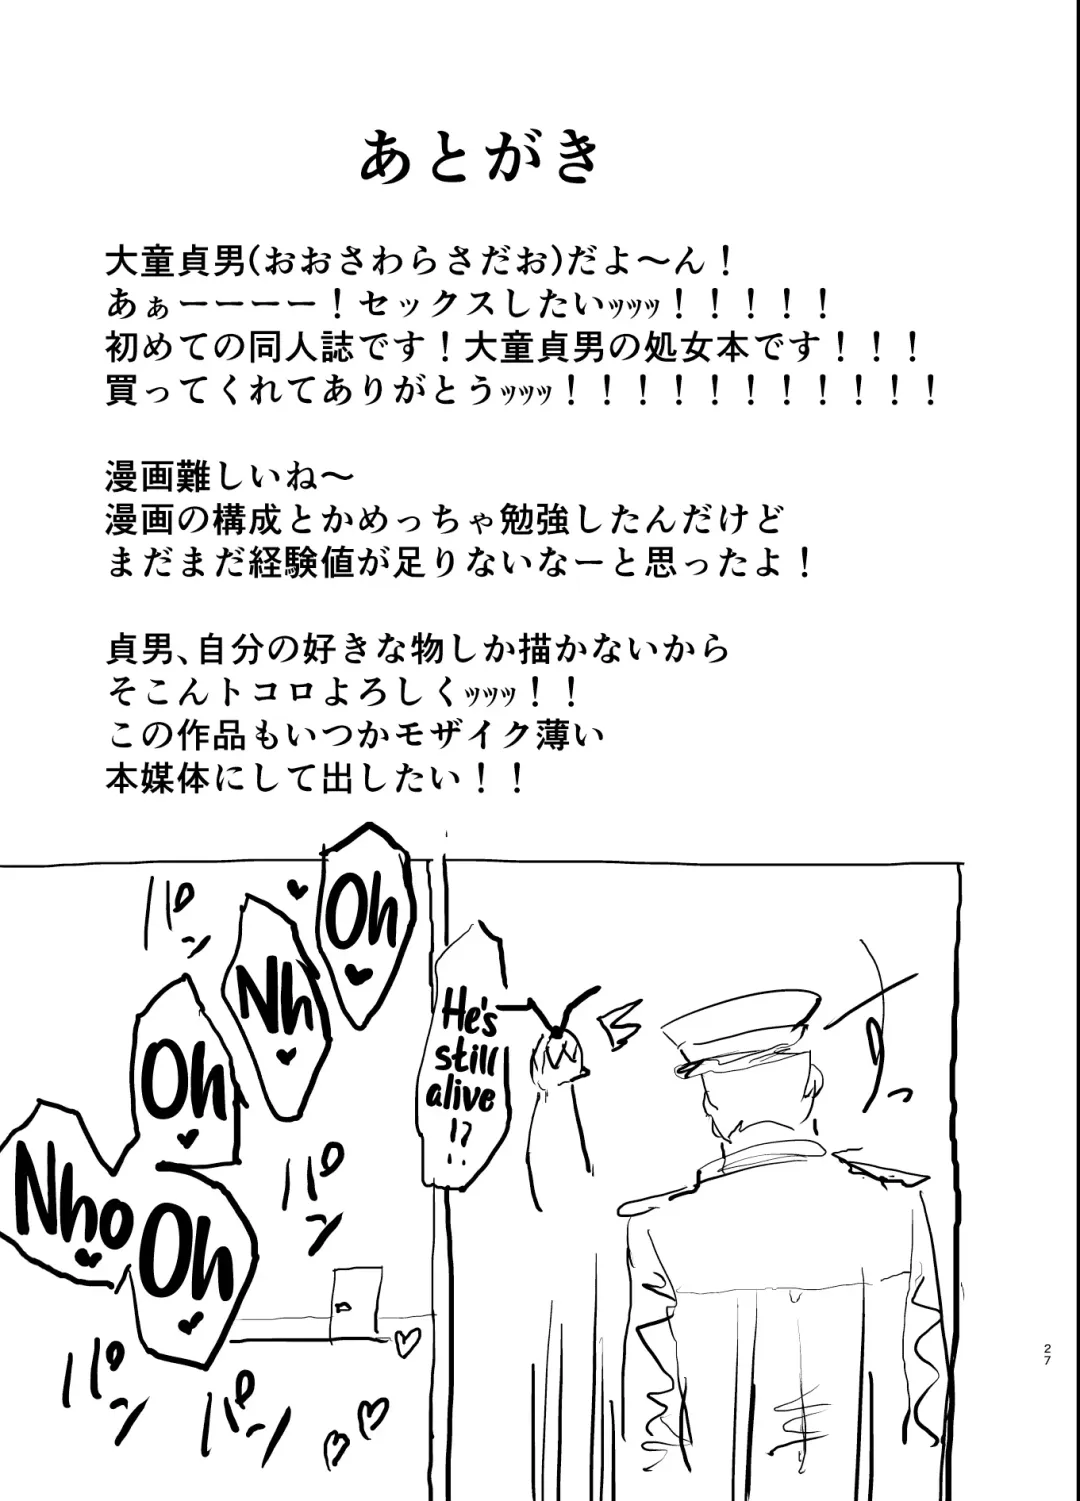 あとがき
大童貞男(おおさわらさだお)だよ～ん！
あぁーーーー！セックスしたいｯｯｯ！！！！！
初めての同人誌です！大童貞男の処女本です！！！
買ってくれてありがとうｯｯｯ！！！！！！！！！！！
漫画難しいね～
漫画の構成とかめっちゃ勉強したんだけど
まだまだ経験値が足りないなーと思ったよ！
貞男、自分の好きな物しか描かないから
そこんトコロよろしくｯｯｯ！！
この作品もいつかモザイク薄い
本媒体にして出したい！！
He's
still
alive
!?
っ
Oh
Nh
Oh
Nho
Oh
パン
パン
パン
パン
27